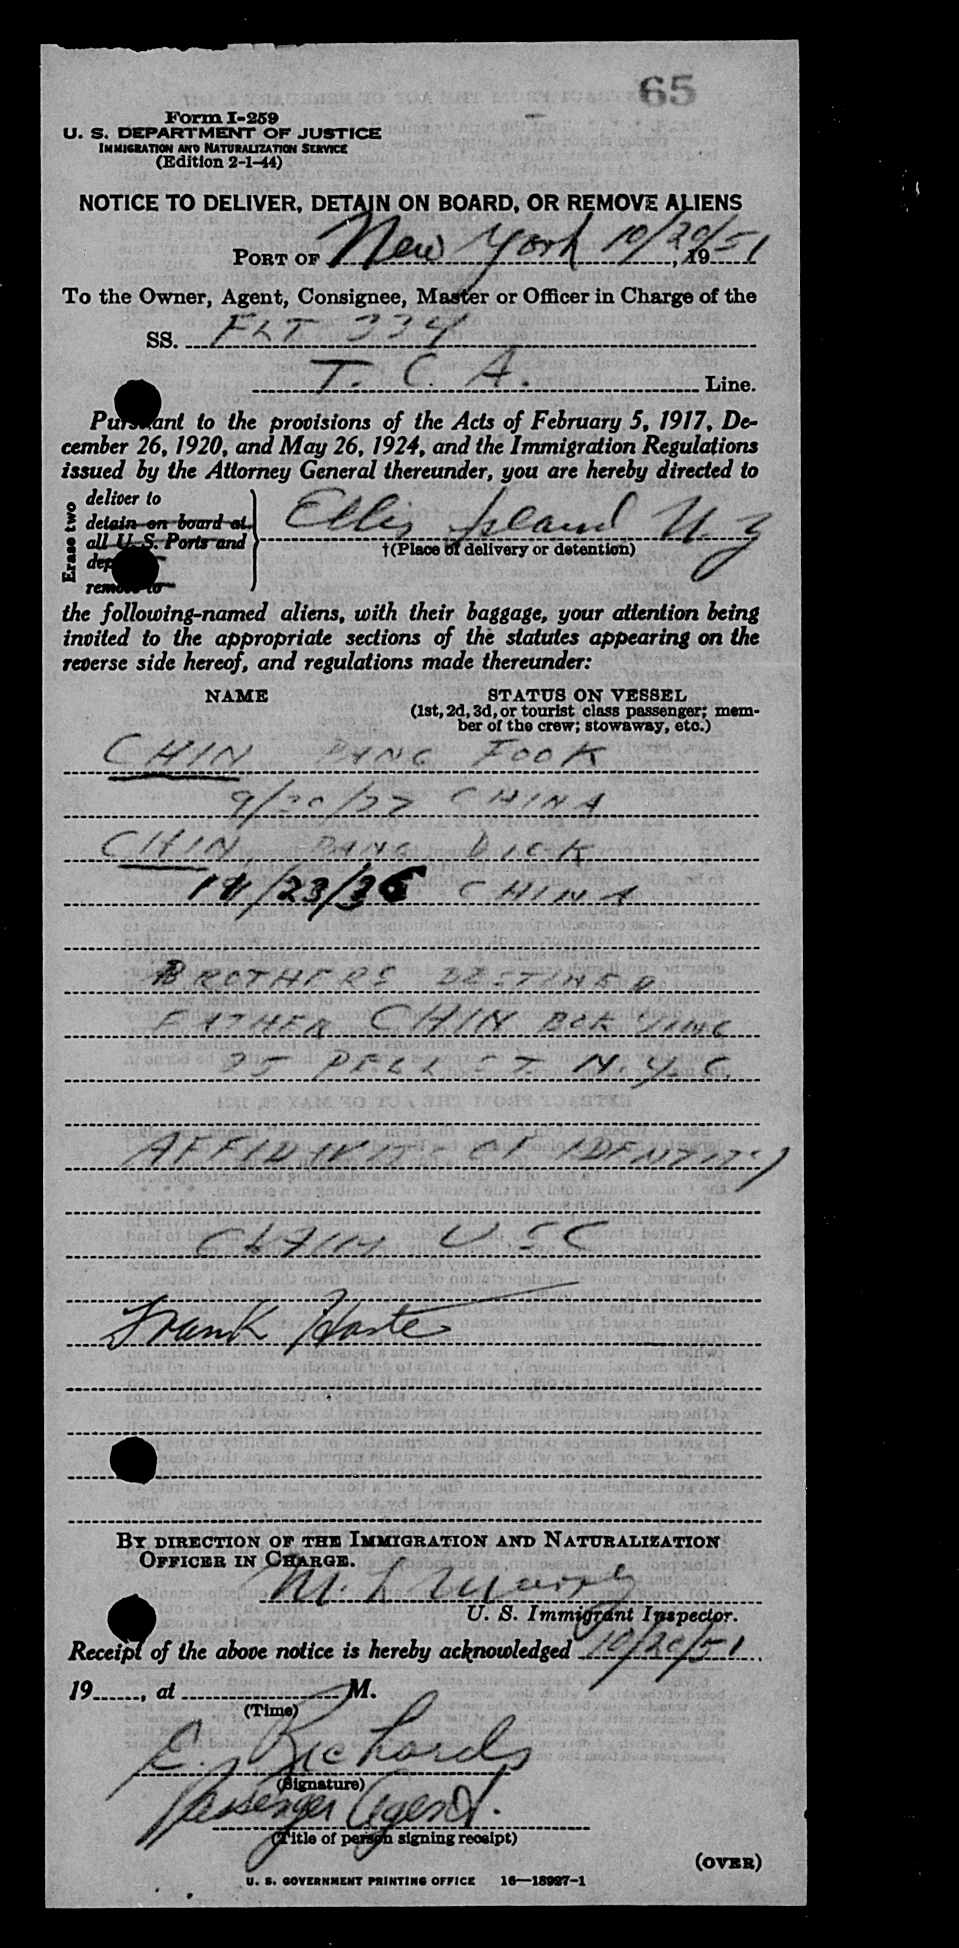 65
Form I-259
U. S. DEPARTMENT OF JUSTICE
IMMIGRATION AND NATURALIZATION SERVICE
(Edition 2-1-44)
NOTICE TO DELIVER, DETAIN ON BOARD, OR REMOVE ALIENS
PORT OF New York 10/20/51, 19
To the Owner, Agent, Consignee, Master or Officer in Charge of the
SS. FLT 334
T. C. A. Line.
Pursuant to the provisions of the Acts of February 5, 1917, De-
cember 26, 1920, and May 26, 1924, and the Immigration Regulations
issued by the Attorney General thereunder, you are hereby directed to
Erase two
deliver to
detain on board at
all U. S. Ports and
dep
remove to
Ellis Island N.Y
†(Place of delivery or detention)
the following-named aliens, with their baggage, your attention being
invited to the appropriate sections of the statutes appearing on the
reverse side hereof, and regulations made thereunder:
NAME STATUS ON VESSEL
(1st, 2d, 3d, or tourist class passenger; mem-
ber of the crew; stowaway, etc.)
CHIN DANG FOOK
CHINA
CHIN, DANG DICK
/23/36 CHINA
BROTHERS DESTINED
FATHER CHIN BOK
PELL ST N.Y.C.
AFFIDAVITS OF IDENTITY
CLAIM USC
Frank Harte
BY DIRECTION OF THE IMMIGRATION AND NATURALIZATION
OFFICER IN CHARGE.
M. L Murphy
U. S. Immigrant Inspector.
Receipt of the above notice is hereby acknowledged 10/20/51
19......, at M.
(Time)
E. Richards
(Signature)
Passenger Agent.
(Title of person signing receipt)
(OVER)
U. S. GOVERNMENT PRINTING OFFICE 16—18927-1